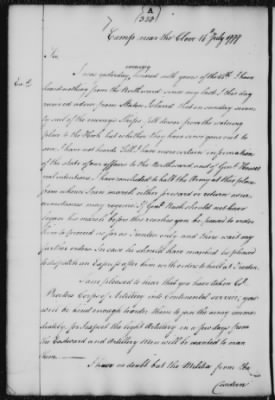 A
330
Camp near the Clove 16 July 1777
Sir
I was yesterday evening honored with yours of the 14th. I have
heard nothing from the Northward since my last. I this day
received advice from Staten Island that on sunday seven
ty sail of the enemys Ships fell down from the watering
place to the Hook, but whether they have since gone out to
sea I have not heard. Till I have more certain information
of the state of our affairs to the Northward and of Genl Howes
real intentions I have concluded to halt the Army at this place
from whence I can march either forward or return as cir
cumstances may require. If Genl Nash should not have
began his march before this reaches you be pleased to order
him to proceed as far as Trenton only and there wait my
further orders. In case he should have marched be pleased
to dispatch an Express after him with orders to halt at Trenton.
I am pleased to hear that you have taken Col
Proctors Corps of Artillery into Continental service; you
will be kind enough to order them to join the army imme
diately, for I expect the light Artillery in a few days from
the Eastward and Artillery Men will be wanted to man
them
I have no doubt but the Militia from the
Eastern